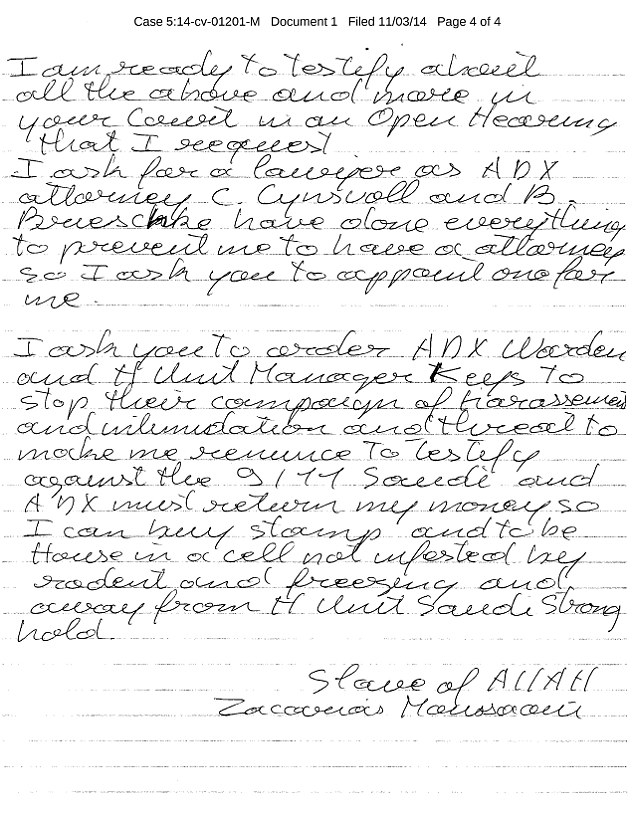 Case 5:14-cv-01201-M Document 1 Filed 11/03/14 Page 4 of 4
I am ready to testify about
all the above and more in
your Court in an Open Hearing
that I request
I ask for a lawyer as ADX
attorney C. Cynsvoll and B.
Brueschke have done everything
to prevent me to have a attorney
so I ask you to appoint one for
me.
I ask you to order ADX Warden
and H Unit Manager Keeps to
stop their campaign of harassement
and intimidation and threat to
make me renunce to testify
against the 9/11 Saudi and
ADX must return my money so
I can buy stamp and to be
House in a cell not infested by
rodent and freezing and
away from H Unit Saudi Strong
hold.
Slave of AllAH
Zacarias Moussaoui